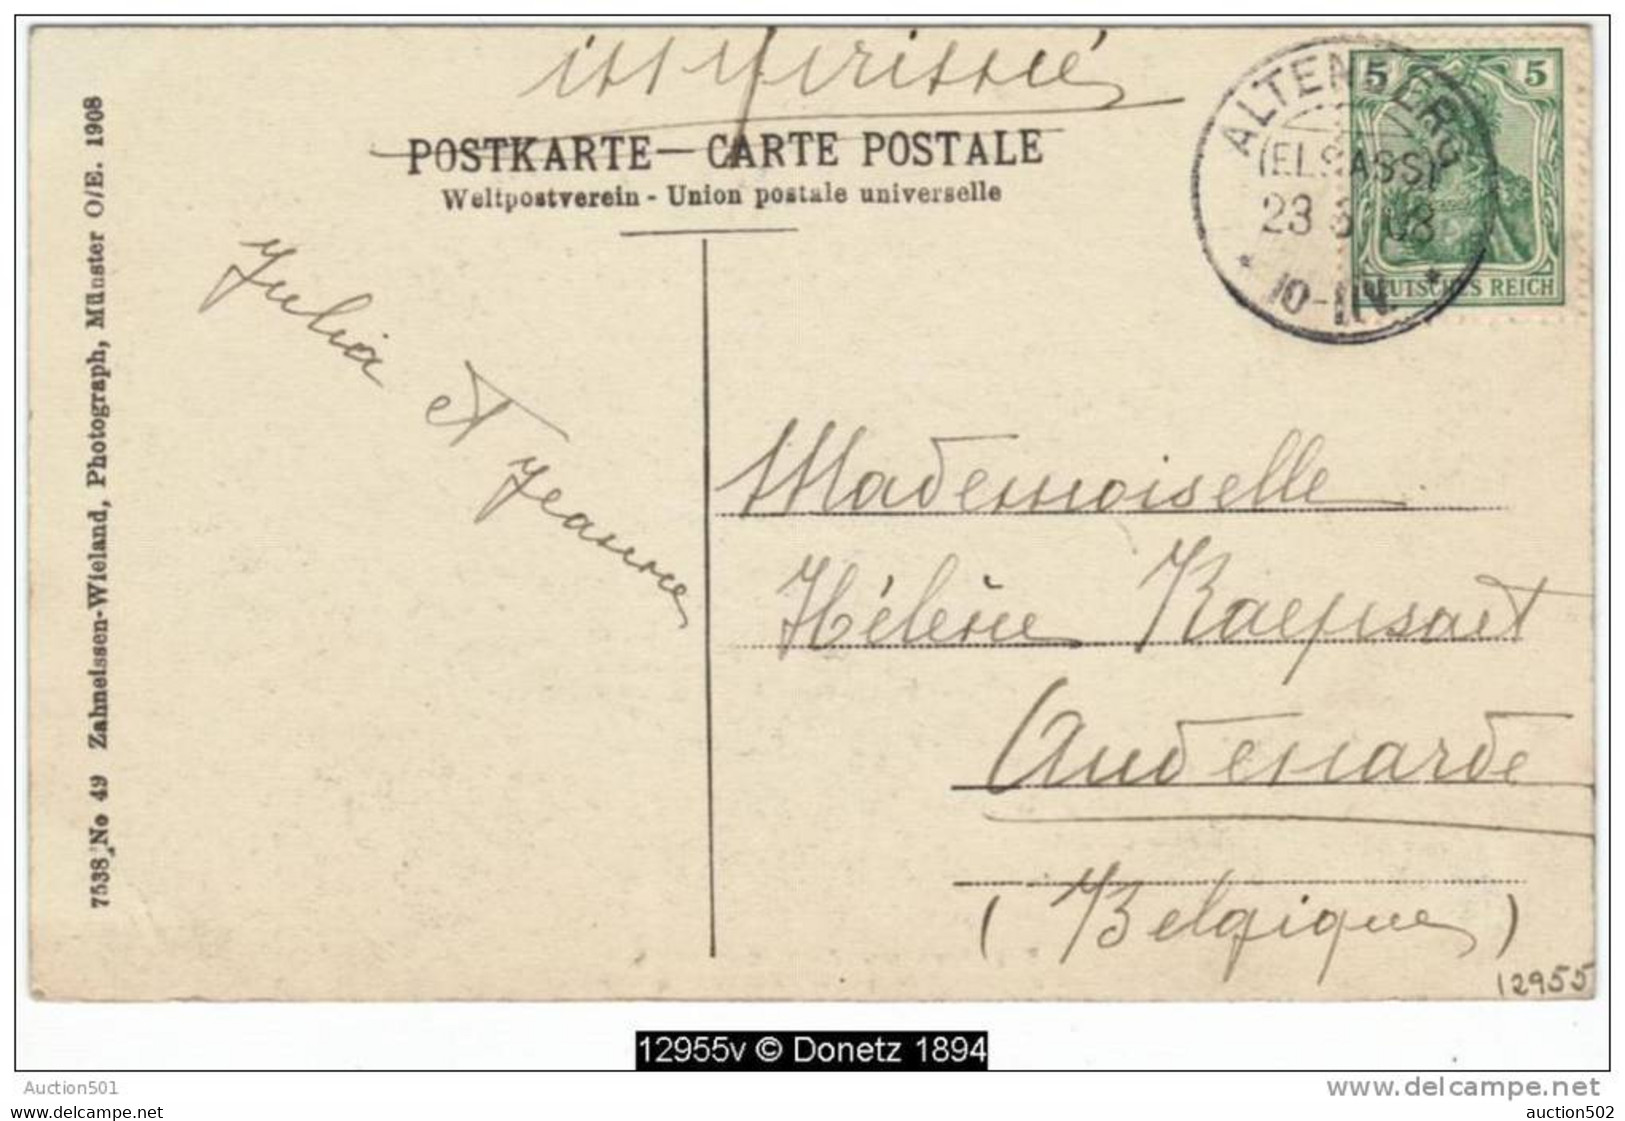 imprimé
POSTKARTE — CARTE POSTALE
Weltpostverein - Union postale universelle
5 5
DEUTSCHES REICH
ALTENBERG
(ELSASS)
23 08
* 10-11V. *
7538 No 49 Zahneissen-Wieland, Photograph, Münster O/E. 1908
Julia
et
Jeanne
Mademoiselle
Hélène Raepsaet
Audenarde
(Belgique)
12955
12955v © Donetz 1894
Auction501
www.delcampe.net
www.delcampe.net
auction502